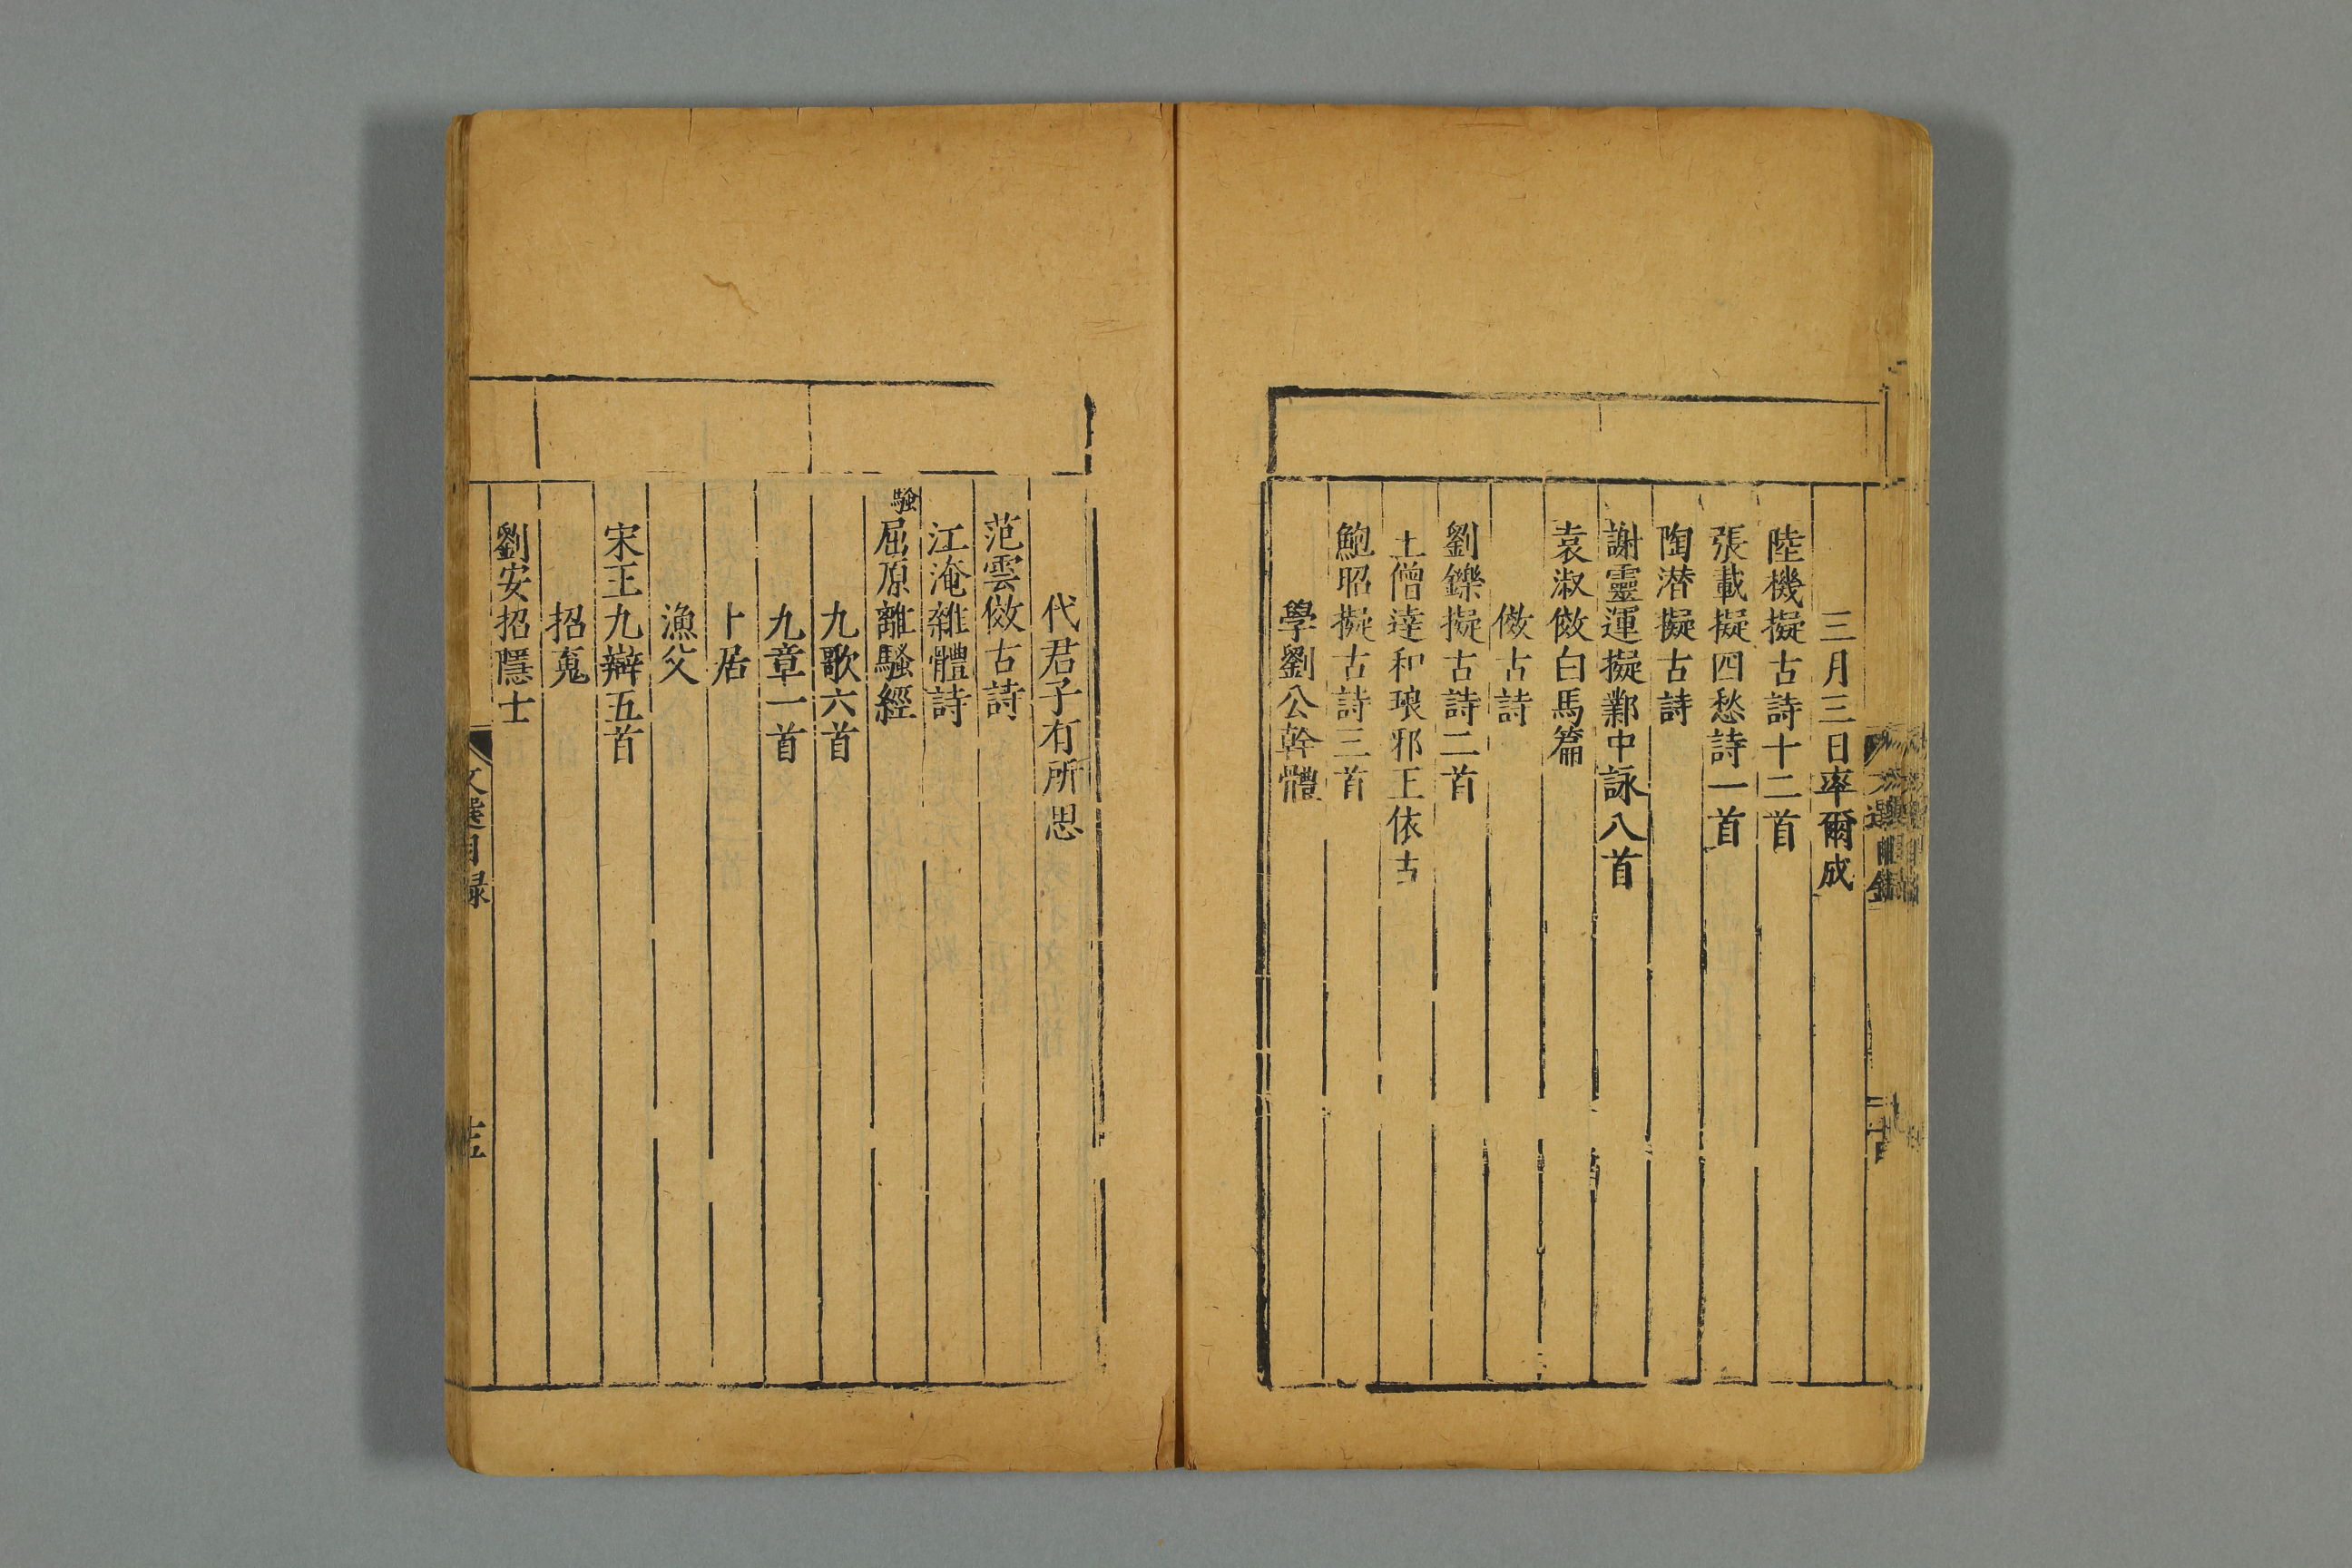 三月三日率爾成
陸機擬古詩十二首
張載擬四愁詩一首
陶潜擬古詩
謝靈運擬鄴中詠八首
袁淑傚白馬篇
傚古詩
劉鑠擬古詩二首
王僧達和琅邪王依古
鮑昭擬古詩三首
學劉公幹體
代君子有所思
范雲傚古詩
江淹雜體詩
騷
屈原離騷經
九歌六首
九章一首
卜居
漁父
宋玉九辯五首
招䰟
劉安招隱士
文選目録